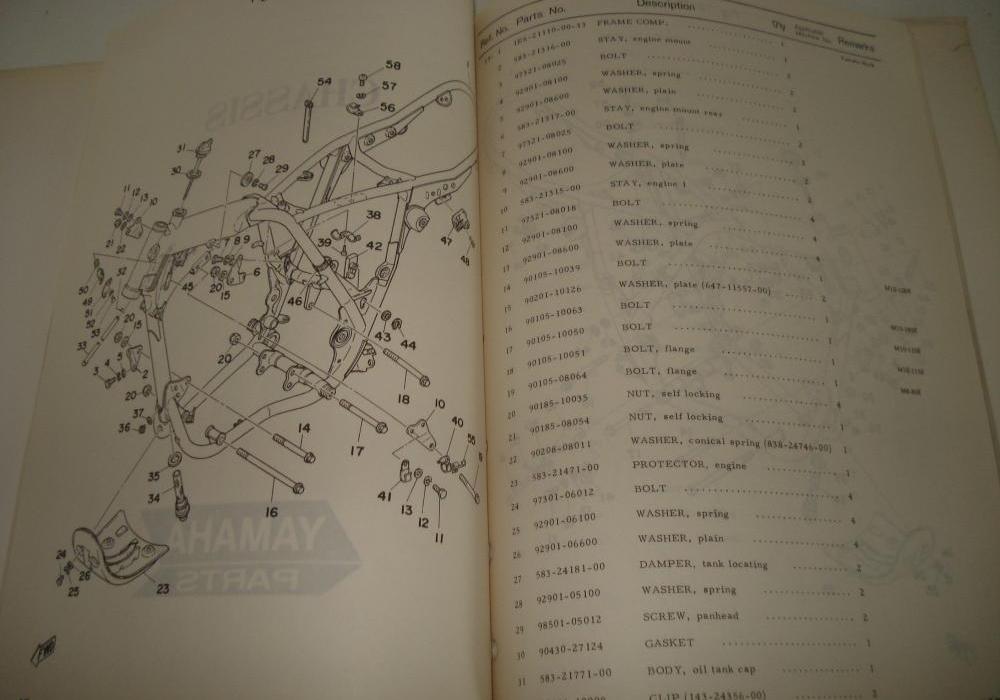 CHASSIS
58
54
57
56
31
30
27
28
29
11
12
13
10
38
21
22
8
9
39
42
47
48
32
47
6
50
45
20
15
49
46
51
52
53
20
15
43
44
33
20
3
4
5
2
18
10
20
40
37
14
17
55
36
35
41
34
13
12
16
11
YAMAHA
PARTS
24
26
25
23
Ref. No. Parts No. Description Q'ty Remarks
1 1E6-21110-00-33 FRAME COMP. 1
2 583-21316-00 STAY, engine mount 1
3 97321-08025 BOLT 2
4 92901-08100 WASHER, spring 2
5 92901-08600 WASHER, plain 2
6 583-21317-00 STAY, engine mount rear 1
7 97321-08025 BOLT 2
8 92901-08100 WASHER, spring
9 92901-08600 WASHER, plate 2
10 583-21315-00 STAY, engine 1
11 97321-08018 BOLT 4
12 92901-08100 WASHER, spring 4
13 92901-08600 WASHER, plate 4
14 90105-10039 BOLT 1
15 90201-10126 WASHER, plate (647-11557-00) 2
16 90105-10063 BOLT 1
17 90105-10050 BOLT 1
18 90105-10051 BOLT, flange 1
19 90105-08064 BOLT, flange 1
20 90185-10035 NUT, self locking 4
21 90185-08054 NUT, self locking 1
22 90208-08011 WASHER, conical spring (838-24746-00) 1
23 583-21471-00 PROTECTOR, engine 1
24 97301-06012 BOLT 4
25 92901-06100 WASHER, spring 4
26 92901-06600 WASHER, plain 4
27 583-24181-00 DAMPER, tank locating 2
28 92901-05100 WASHER, spring 2
29 98501-05012 SCREW, panhead 2
30 90430-27124 GASKET 1
31 583-21771-00 BODY, oil tank cap 1
CLIP (143-24356-00)